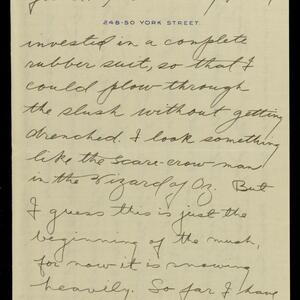 248-50 YORK STREET.
invested in a complete
rubber suit, so that I
could plow through
the slush without getting
drenched. I look something
like the Scare-crow man
in the Wizard of Oz. But
I guess this is just the
beginning of the mush,
for now it is snowing
heavily. So far I have